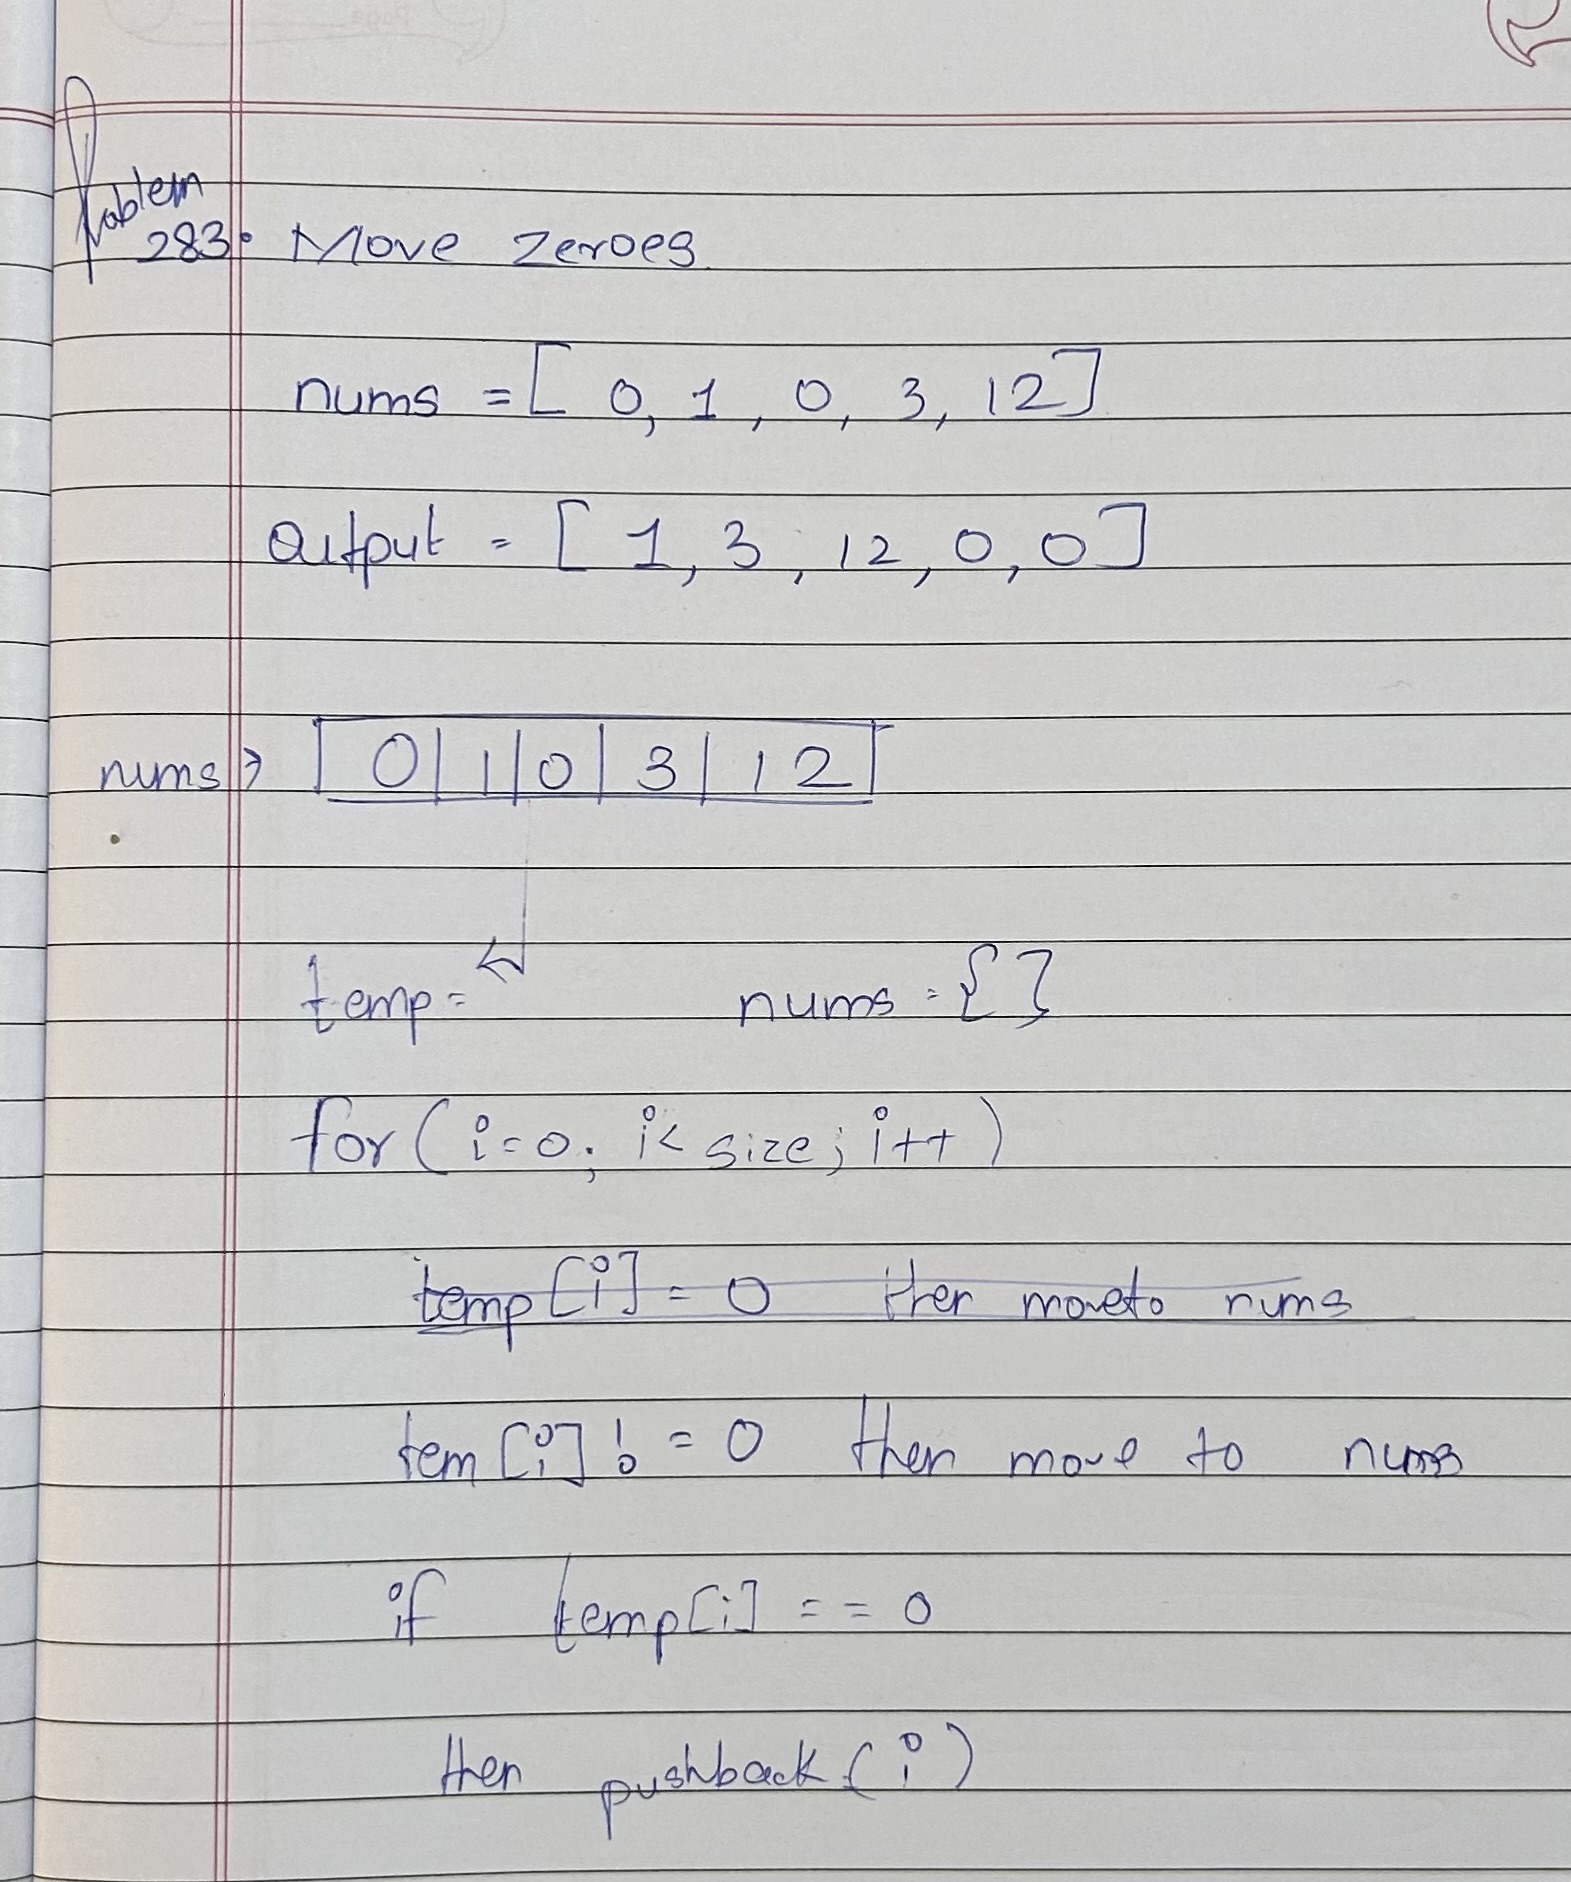 Problem
283: Move Zeroes
nums = [ 0, 1, 0, 3, 12]
Output = [ 1, 3, 12, 0, 0]
nums → | 0 | 1 | 0 | 3 | 12 |
temp = nums = { }
for ( i=0; i< size; i++)
temp[i] = 0 then move to nums
tem[i] != 0 then move to nums
if temp[i] == 0
then pushback(i)